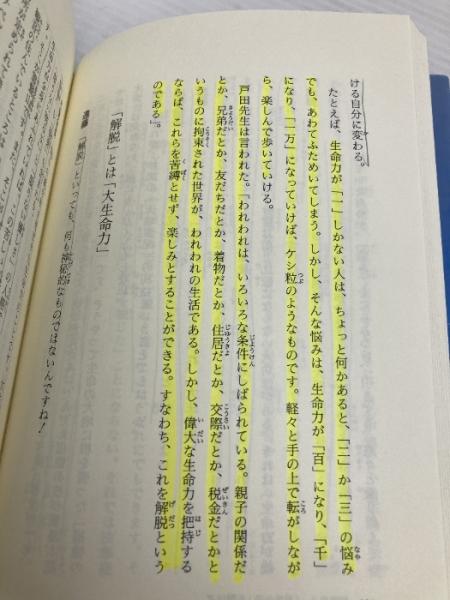 ける自分に変わる。
たとえば、生命力が「一」しかない人は、ちょっと何かあると、「二」か「三」の悩み
でも、あわてふためいてしまう。しかし、そんな悩みは、生命力が「百」になり、「千」
になり、「一万」になっていけば、ケシ粒のようなものです。軽々と手の上で転がしなが
ら、楽しんで歩いていける。
戸田先生は言われた。「われわれは、いろいろな条件にしばられている。親子の関係だ
とか、兄弟だとか、友だちだとか、着物だとか、住居だとか、交際だとか、税金だとかと
いうものに拘束された世界が、われわれの生活である。しかし、偉大な生命力を把持する
ならば、これらを苦縛とせず、楽しみとすることができる。すなわち、これを解脱という
のである」。
「解脱」とは「大生命力」
遠藤 「解脱」といっても、何も神秘的なものではないんですね！